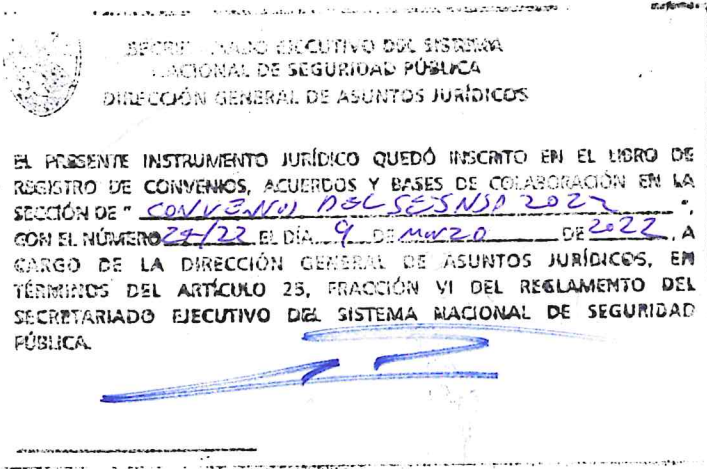 SECRETARIADO EJECUTIVO DEL SISTEMA
NACIONAL DE SEGURIDAD PÚBLICA
DIRECCIÓN GENERAL DE ASUNTOS JURÍDICOS
EL PRESENTE INSTRUMENTO JURÍDICO QUEDÓ INSCRITO EN EL LIBRO DE
REGISTRO DE CONVENIOS, ACUERDOS Y BASES DE COLABORACIÓN EN LA
SECCIÓN DE " CONVENIOS DEL SESNSP 2022 ",
CON EL NÚMERO 24/22 EL DÍA 9 DE Marzo DE 2022, A
CARGO DE LA DIRECCIÓN GENERAL DE ASUNTOS JURÍDICOS, EN
TÉRMINOS DEL ARTÍCULO 25, FRACCIÓN VI DEL REGLAMENTO DEL
SECRETARIADO EJECUTIVO DEL SISTEMA NACIONAL DE SEGURIDAD
PÚBLICA.